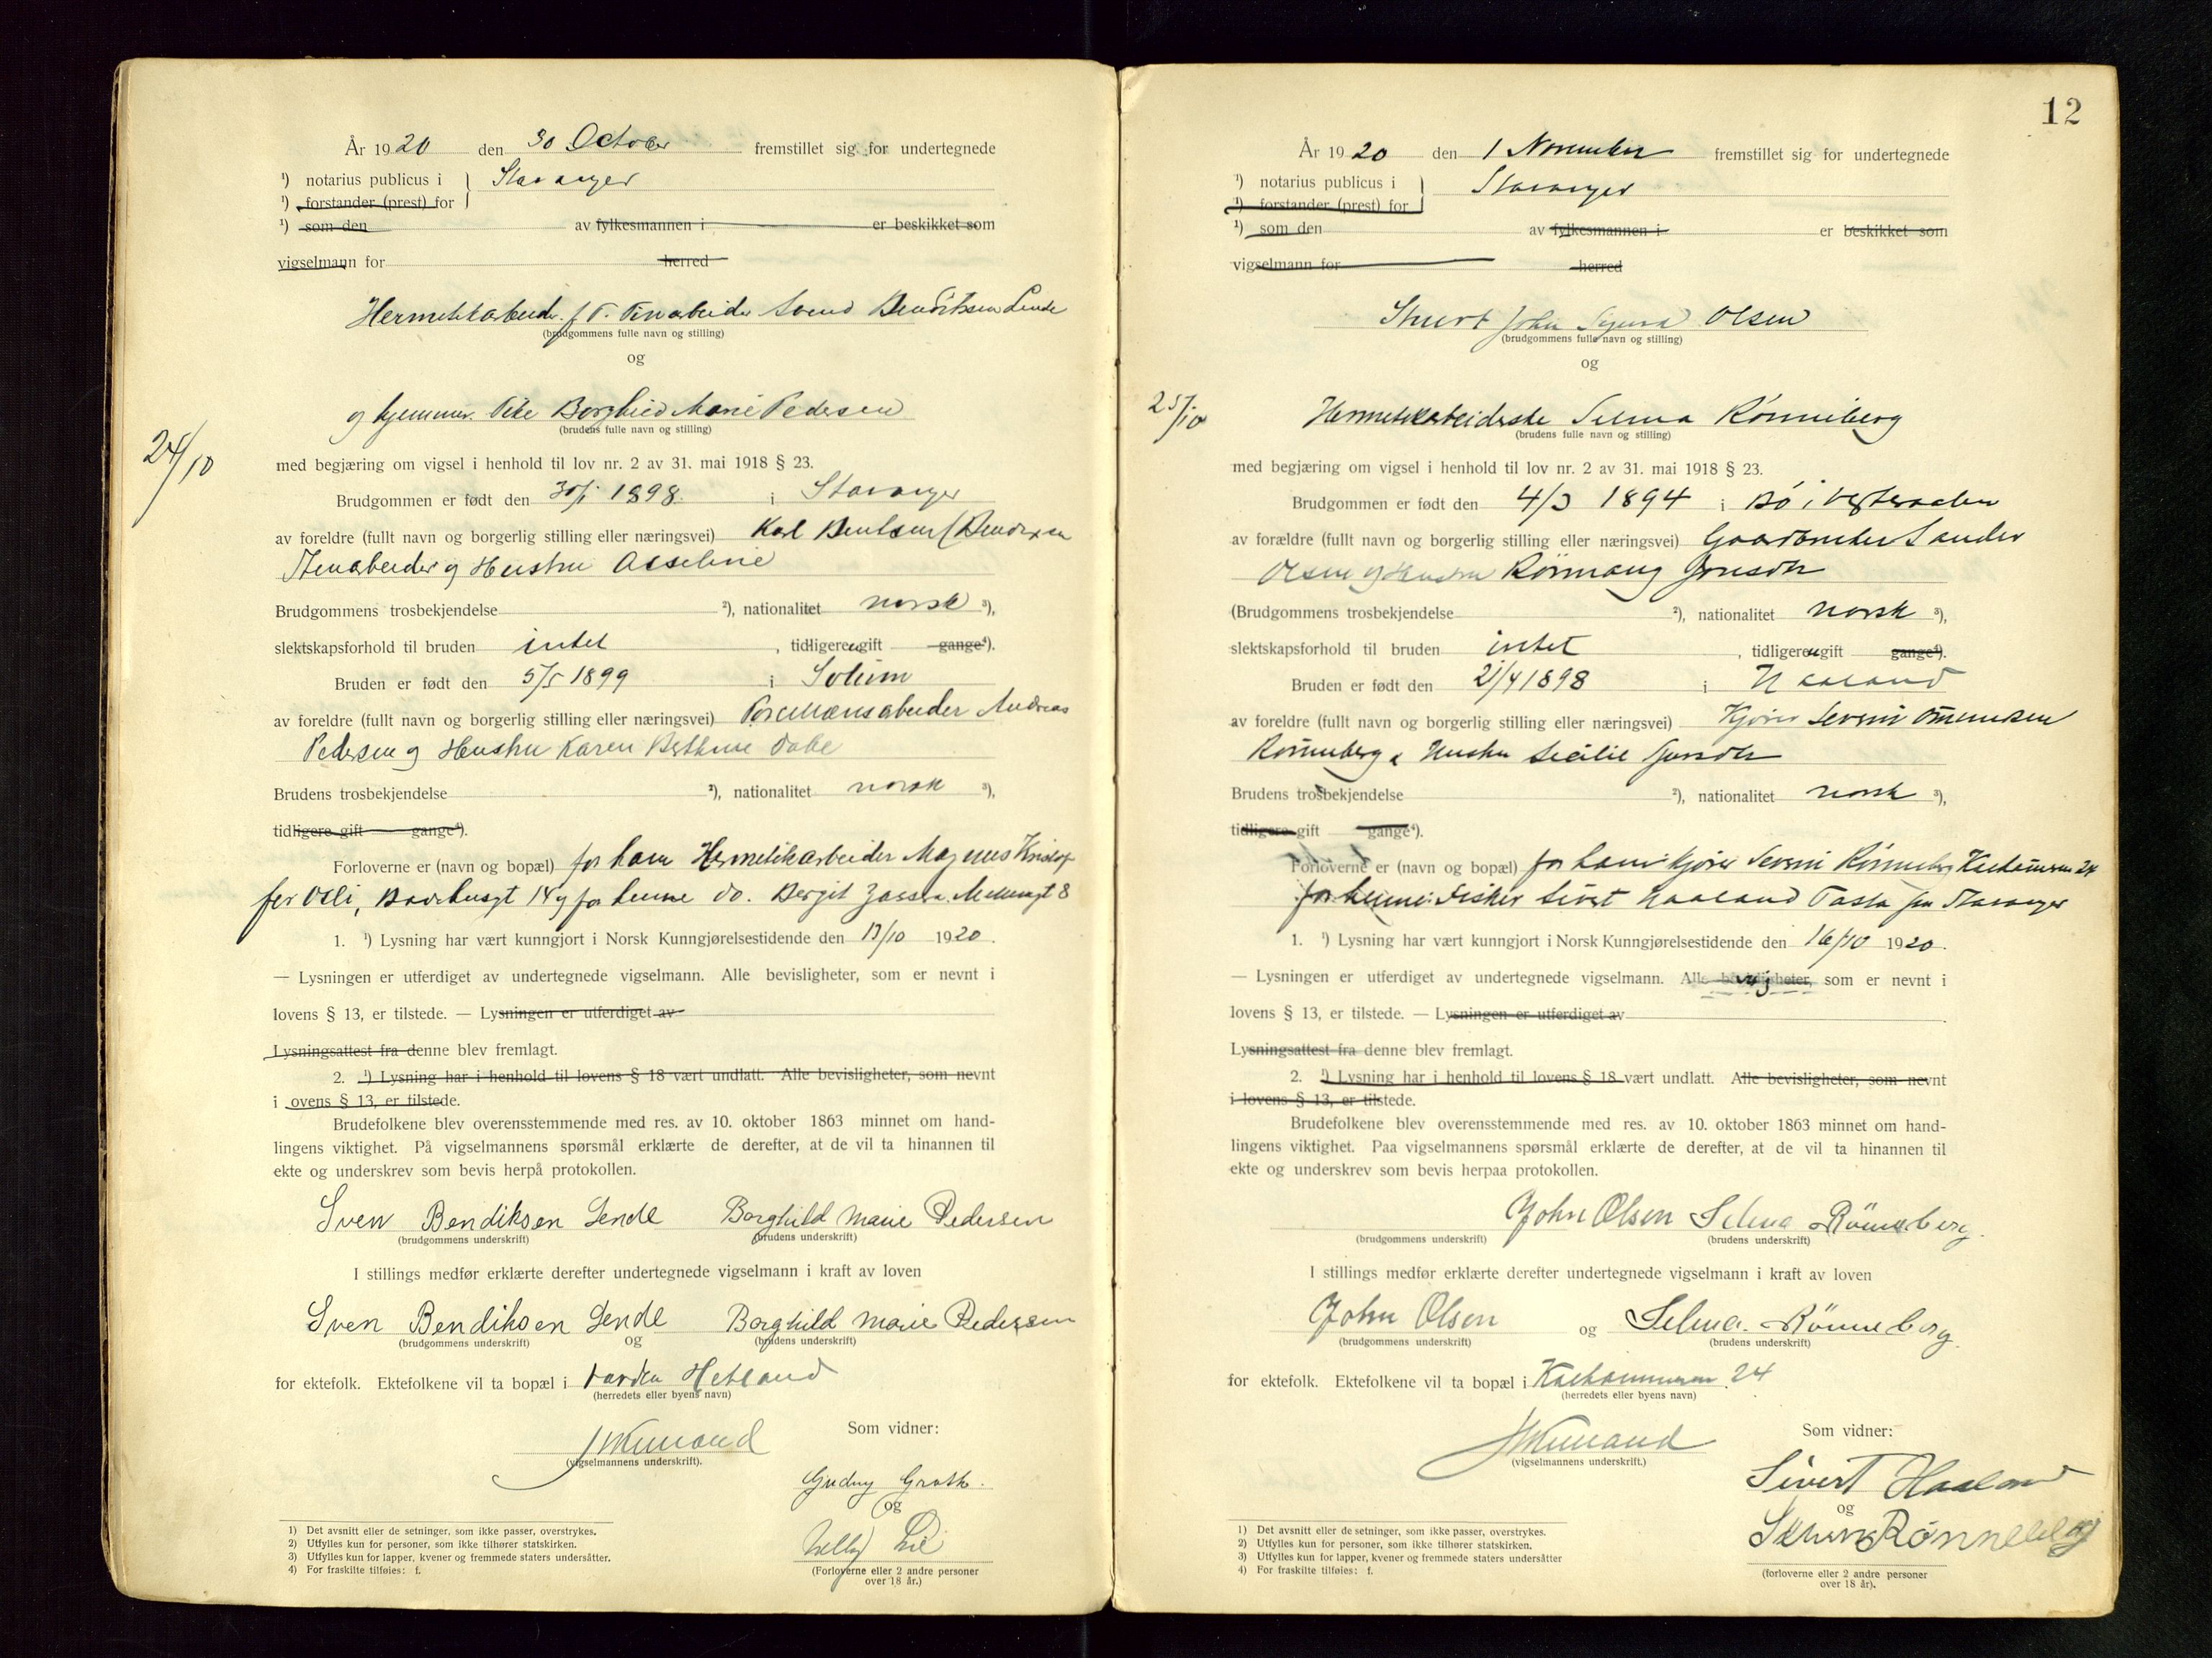 År 1920 den 30 October fremstillet sig for undertegnede
¹) notarius publicus i } Stavanger
¹) forstander (prest) for
¹) som den av fylkesmannen i er beskikket som
vigselmann for herred
Hermetikarbeider f. T. Svend Lende
(brudgommens fulle navn og stilling)
og
og hjemmev. Pike Borghild Marie Pedersen
(brudens fulle navn og stilling)
24/10
med begjæring om vigsel i henhold til lov nr. 2 av 31. mai 1918 § 23.
Brudgommen er født den 1898. i Stavanger
av foreldre (fullt navn og borgerlig stilling eller næringsvei) Karl Bentsen (Bendixsen
Stenarbeider og Hustru Asseline
Brudgommens trosbekjendelse ²), nationalitet norsk ³),
slektskapsforhold til bruden intet , tidligere ugift gange⁴).
Bruden er født den 5/5 1899 i Solum
av foreldre (fullt navn og borgerlig stilling eller næringsvei) Porcellænsarbeider Andreas
Pedersen og Hustru Karen Berthine
Brudens trosbekjendelse ²), nationalitet norsk ³),
tidligere gift gange⁴).
Forloverne er (navn og bopæl) for ham Hermetikarbeider Magnus Kristof
fer Osli, 14 og for henne do. Bergit 8
1. ¹) Lysning har vært kunngjort i Norsk Kunngjørelsestidende den 13/10 1920.
— Lysningen er utferdiget av undertegnede vigselmann. Alle bevisligheter, som er nevnt i
lovens § 13, er tilstede. — Lysningen er utferdiget av
Lysningsattest fra denne blev fremlagt.
2. ¹) Lysning har i henhold til lovens § 18 vært undlatt. Alle bevisligheter, som nevnt
i ovens § 13, er tilstede.
Brudefolkene blev overensstemmende med res. av 10. oktober 1863 minnet om hand-
lingens viktighet. På vigselmannens spørsmål erklærte de derefter, at de vil ta hinannen til
ekte og underskrev som bevis herpå protokollen.
Sven Bendiksen Lende Borghild Marie Pedersen
(brudgommens underskrift) (brudens underskrift)
I stillings medfør erklærte derefter undertegnede vigselmann i kraft av loven
Sven Bendiksen Lende Borghild Marie Pedersen
(brudgommens underskrift) og (brudens underskrift)
for ektefolk. Ektefolkene vil ta bopæl i Hetland
(herredets eller byens navn)
(vigselmannens underskrift).
Som vidner:
Gudny Groth.
og
Lie
(Forloverne eller 2 andre personer
over 18 år.)
1) Det avsnitt eller de setninger, som ikke passer, overstrykes.
2) Utfylles kun for personer, som ikke tilhører statskirken.
3) Utfylles kun for lapper, kvener og fremmede staters undersåtter.
4) For fraskilte tilføies: f.
12
År 1920 den 1 November fremstillet sig for undertegnede
¹) notarius publicus i } Stavanger
¹) forstander (prest) for
¹) som den av fylkesmannen i er beskikket som
vigselmann for herred
Stuert John Sigurd Olsen
(brudgommens fulle navn og stilling)
og
25/10
Hermetikarbeiderske Selma Rønneberg
(brudens fulle navn og stilling)
med begjæring om vigsel i henhold til lov nr. 2 av 31. mai 1918 § 23.
Brudgommen er født den 4/3 1894 i Bø i Vesteraalen
av forældre (fullt navn og borgerlig stilling eller næringsvei) Gaardbruker Sander
Olsen og Hustru
(Brudgommens trosbekjendelse ²), nationalitet norsk ³),
slektskapsforhold til bruden intet , tidligere ugift gange⁴).
Bruden er født den 21/4 1898 i Haaland
av foreldre (fullt navn og borgerlig stilling eller næringsvei) Kjører Severin Ommundsen
Rønneberg & Hustru Secilie
Brudens trosbekjendelse ²), nationalitet norsk ³),
tidligere gift gange⁴).
Forloverne er (navn og bopæl) for ham: Kjører Severin Rønneberg Kalhammeren 24
for henne: Fisker Sivert Haaland Tasta pr Stavanger
1. ¹) Lysning har vært kunngjort i Norsk Kunngjørelsestidende den 16/10 1920.
— Lysningen er utferdiget av undertegnede vigselmann. Alle bevisligheter, som er nevnt i
lovens § 13, er tilstede. — Lysningen er utferdiget av
Lysningsattest fra denne blev fremlagt.
2. ¹) Lysning har i henhold til lovens § 18 vært undlatt. Alle bevisligheter, som nevnt
i lovens § 13, er tilstede.
Brudefolkene blev overensstemmende med res. av 10. oktober 1863 minnet om hand-
lingens viktighet. Paa vigselmannens spørsmål erklærte de derefter, at de vil ta hinannen til
ekte og underskrev som bevis herpaa protokollen.
John Olsen Selma Rönneberg.
(brudgommens underskrift) (brudens underskrift)
I stillings medfør erklærte derefter undertegnede vigselmann i kraft av loven
John Olsen og Selma. Rönneberg.
(brudgommens underskrift) (brudens underskrift)
for ektefolk. Ektefolkene vil ta bopæl i Kalhammeren 24
(herredets eller byens navn)
(vigselmannens underskrift.)
Som vidner:
Sivert Haaland
og
Rønneberg
(forloverne eller 2 andre personer
over 18 år).
1) Det avsnitt eller de setninger, som ikke passer, overstrykes.
2) Utfylles kun for personer, som ikke tilhører statskirken.
3) Utfylles kun for lapper, kvener og fremmede staters undersåtter
4) For fraskilte tilføies: f.